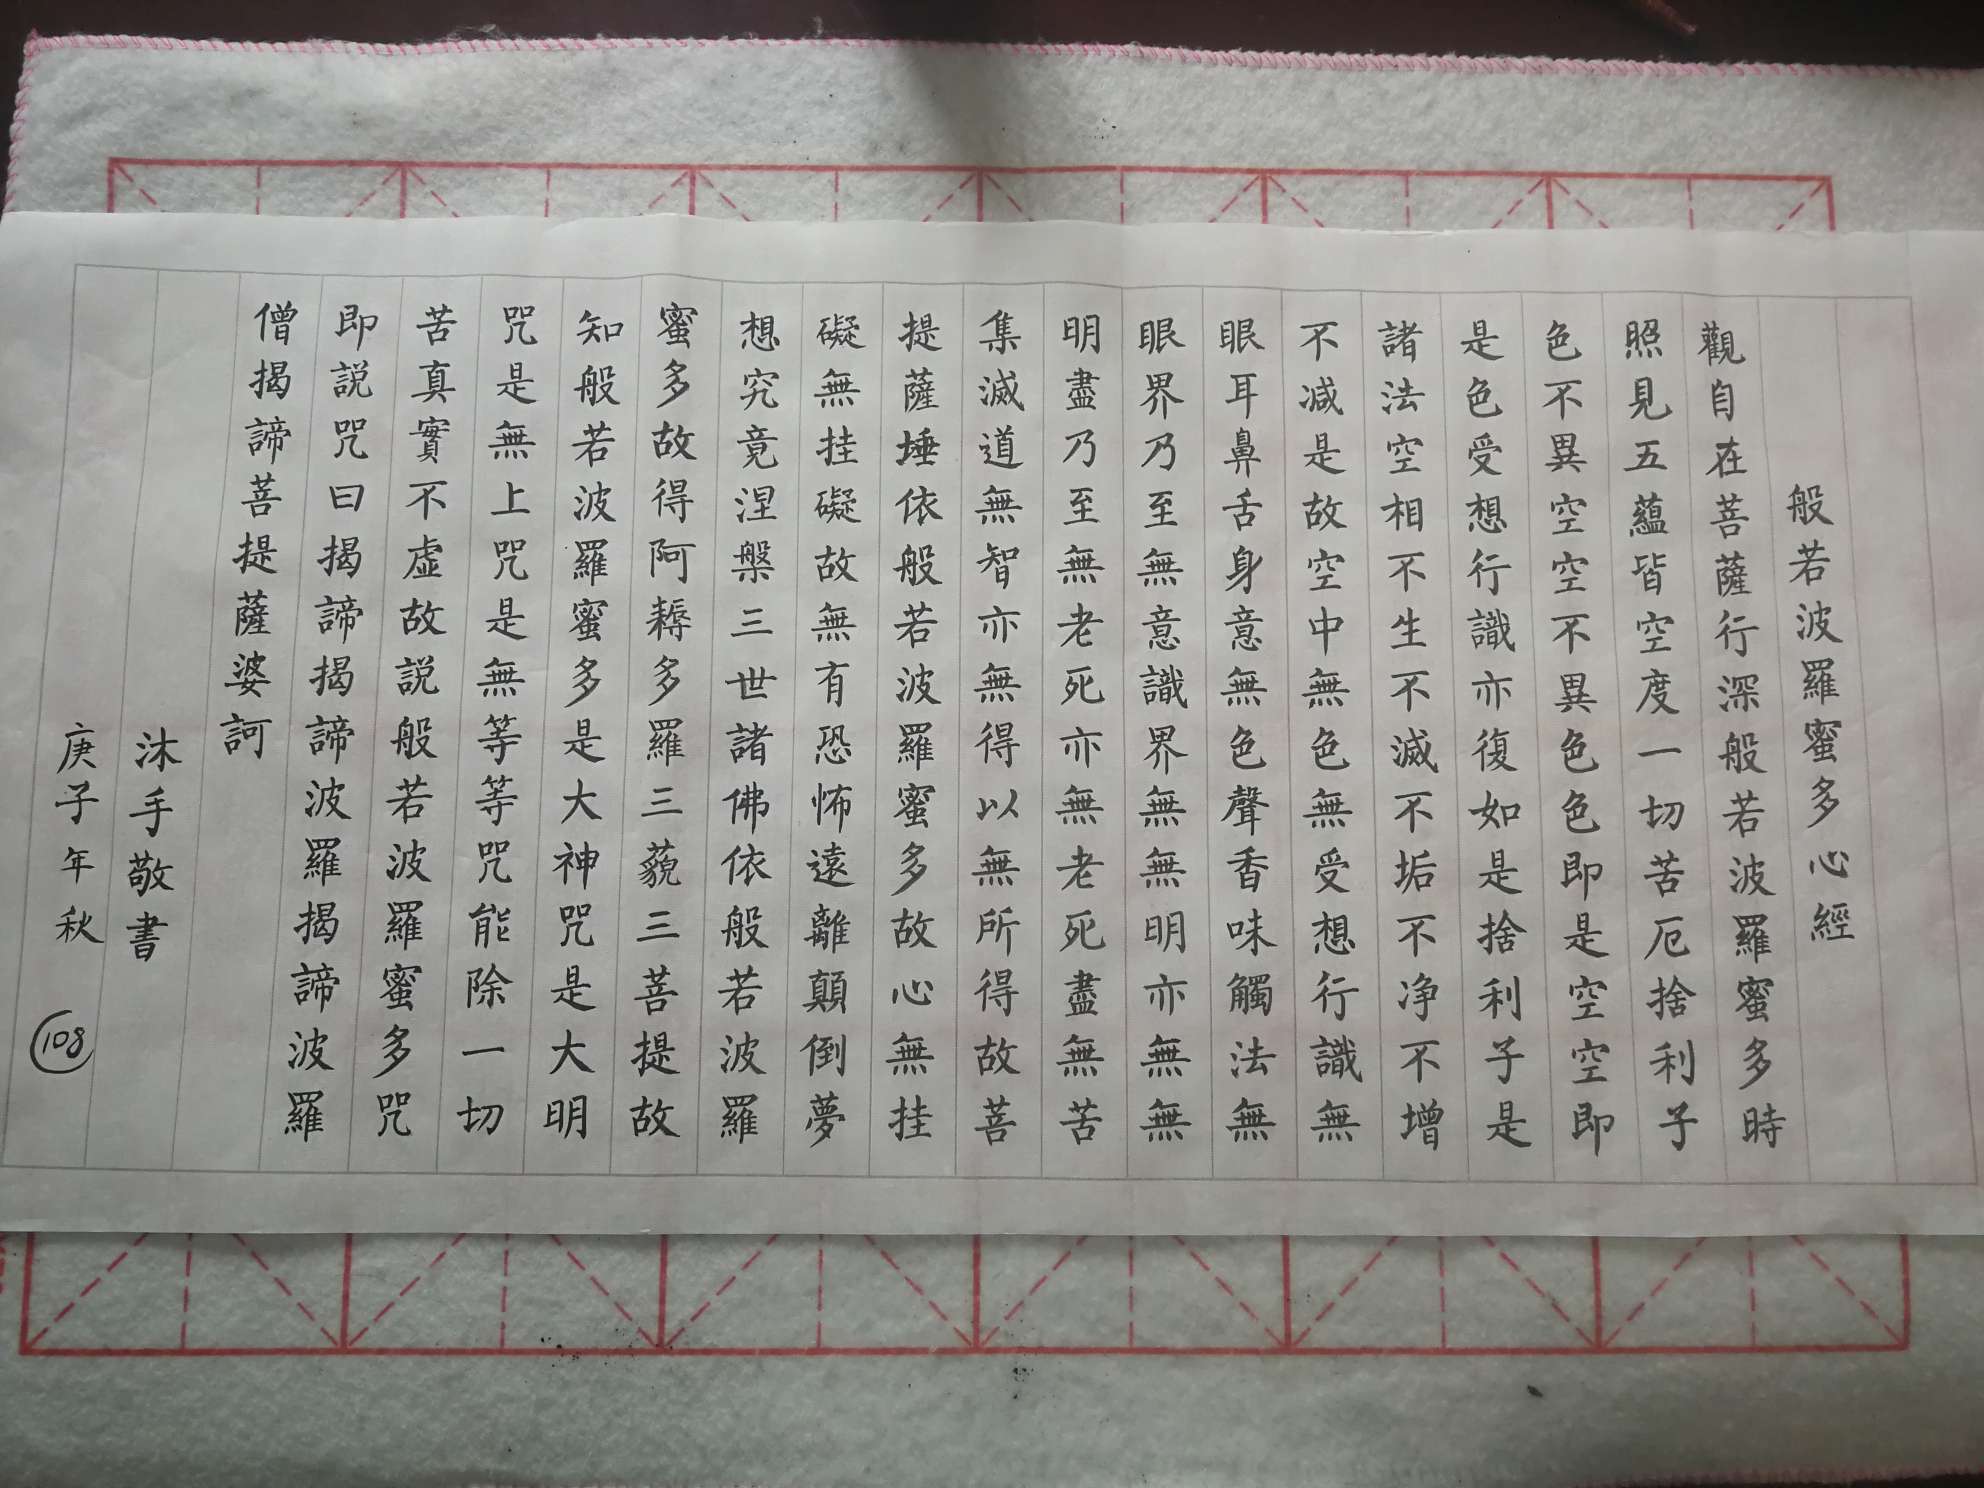 般若波羅蜜多心經
觀自在菩薩行深般若波羅蜜多時
照見五蘊皆空度一切苦厄捨利子
色不異空空不異色色即是空空即
是色受想行識亦復如是捨利子是
諸法空相不生不滅不垢不净不增
不减是故空中無色無受想行識無
眼耳鼻舌身意無色聲香味觸法無
眼界乃至無意識界無無明亦無無
明盡乃至無老死亦無老死盡無苦
集滅道無智亦無得以無所得故菩
提薩埵依般若波羅蜜多故心無挂
礙無挂礙故無有恐怖遠離顛倒夢
想究竟涅槃三世諸佛依般若波羅
蜜多故得阿耨多羅三藐三菩提故
知般若波羅蜜多是大神咒是大明
咒是無上咒是無等等咒能除一切
苦真實不虛故説般若波羅蜜多咒
即説咒曰揭諦揭諦波羅揭諦波羅
僧揭諦菩提薩婆訶
沐手敬書
庚子年秋 108